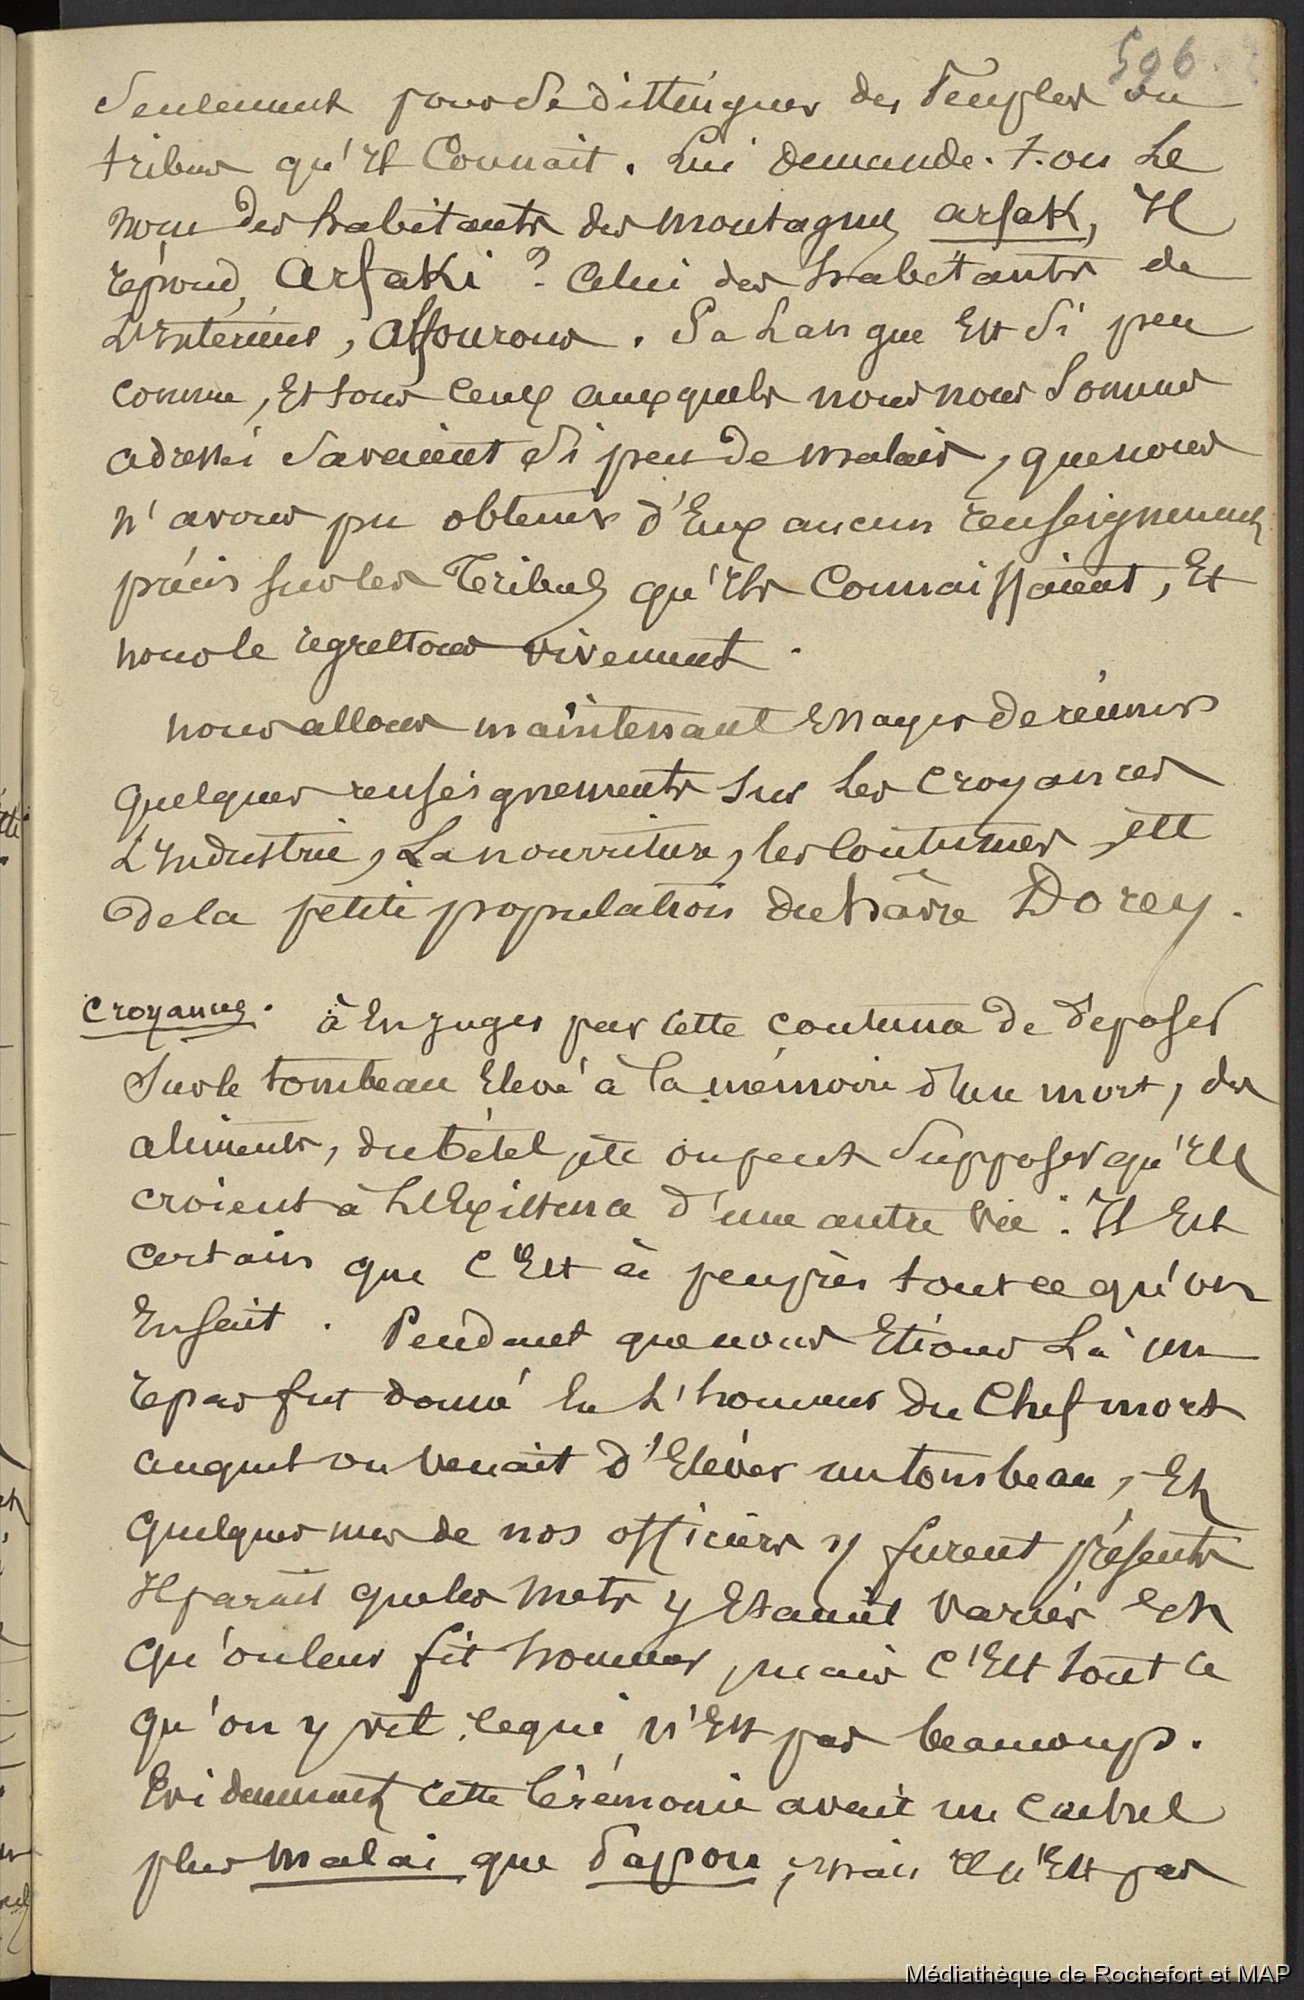 596
Seulement pour se distinguer des Peuples ou
tribus qu'Il Connait. Lui demande-t-on Le
Nom des habitants des montagnes arfak, Il
répond, Arfaki ? Celui des habitants de
L'Intérieur, Alfourous. Sa Langue Est Si peu
connue, Et tous Ceux auxquels nous nous Sommes
adressés Savaient Si peu de malais, que nous
n'avons pu obtenir d'Eux aucun renseignement
précis sur les Tribus qu'Ils Connaissaient, Et
nous le regrettons vivement.
nous allons maintenant Essayer de réunir
quelques renseignements sur Les croyances
L'Industrie, La nourriture, les Coutumes, etc
de la petite population du hâvre Dorey.
Croyances. à En juger par cette coutume de déposer
Sur le tombeau Elevé à la mémoire d'un mort, des
aliments, du bétel, etc on peut Supposer qu'Ils
croient à L'Existence d'une autre vie. Il Est
certain que C'Est à peu près tout ce qu'on
En sait. Pendant que nous Etions Là un
repas fut donné En L'honneur du Chef mort
auquel on venait d'Elever un tombeau, Et
quelques uns de nos officiers y furent présents
Il parait que les Mets y Etaient variés Et
qu'on leur fit honneur, mais C'Est tout ce
qu'on y vit, ce qui n'Est pas beaucoup.
Evidemment cette Cérémonie avait un Cachet
plus malai que Papou, mais Il n'Est pas
Médiathèque de Rochefort et MAP